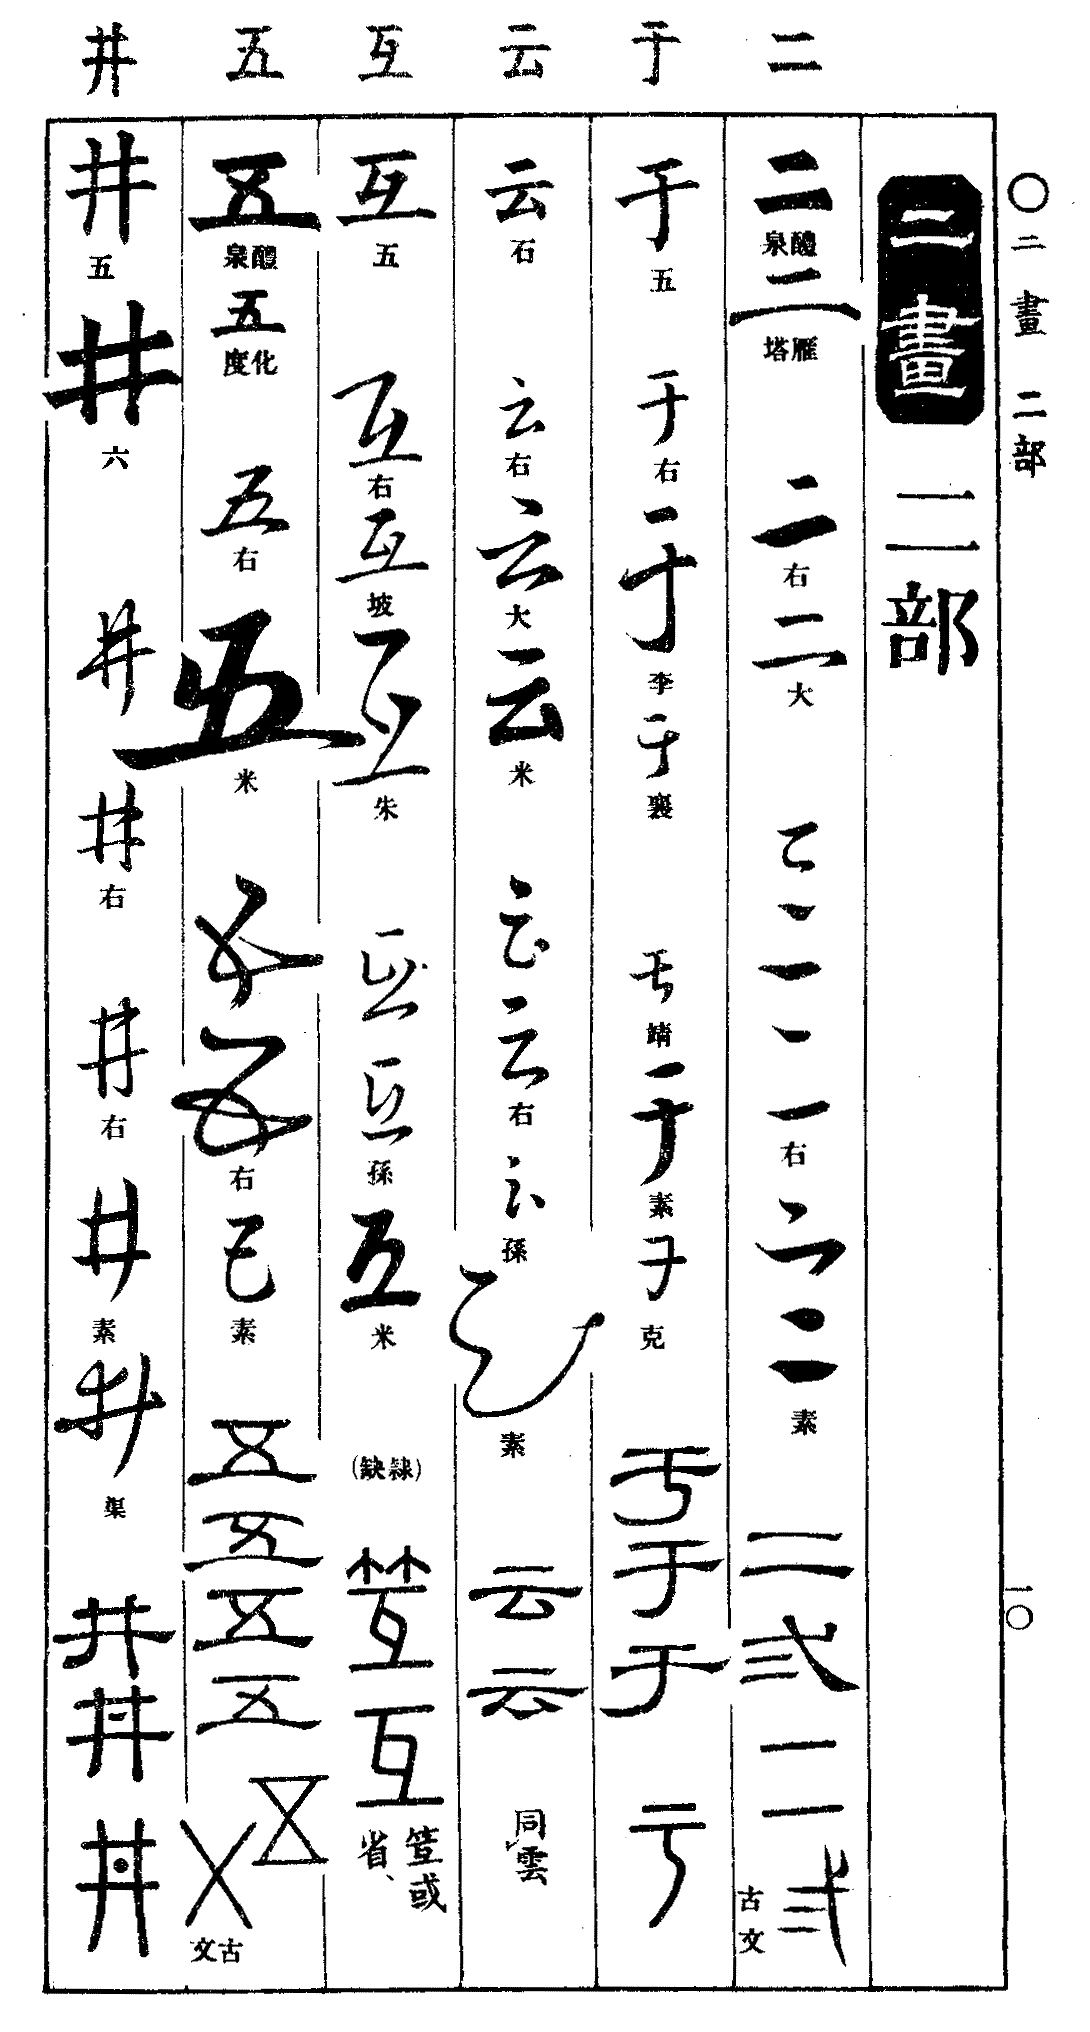 〇二畫 二部 一〇
二 于 云 互 五 井
二畫 二部
二 醴泉 二 雁塔 二 右 二 大 二 二 二 右 二 二 素 二 弍 二 弍 古文
于 五 于 右 于 李 于 襄 于 靖 于 素 于 克 于 于 于 亏
云 石 云 右 云 大 云 米 云 云 右 云 孫 云 素 云 云 同雲
互 五 互 右 互 坡 互 朱 互 互 孫 互 米 (隷缺) 互 或省、
五 醴泉 五 化度 五 右 五 米 五 五 右 五 素 五 五 五 五 五 㐅 古文
井 五 井 六 井 井 右 井 右 井 素 井 渠 井 丼 丼